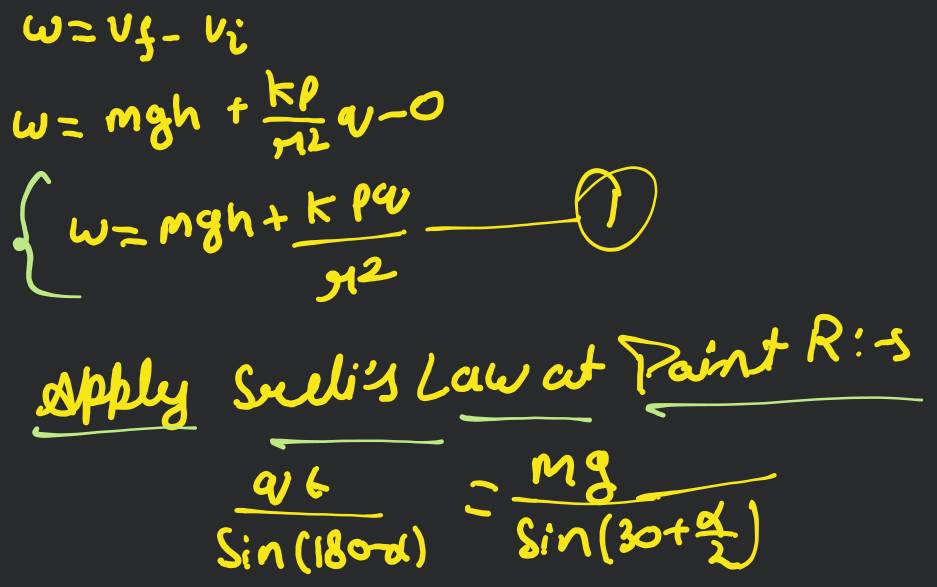 w = Vf - Vi
w = mgh + kp/r² q - 0
w = mgh + k pq/r² ——— ①
Apply Snell's Law at Paint R:-s
qE/Sin(180-α) = mg/Sin(30+α/2)